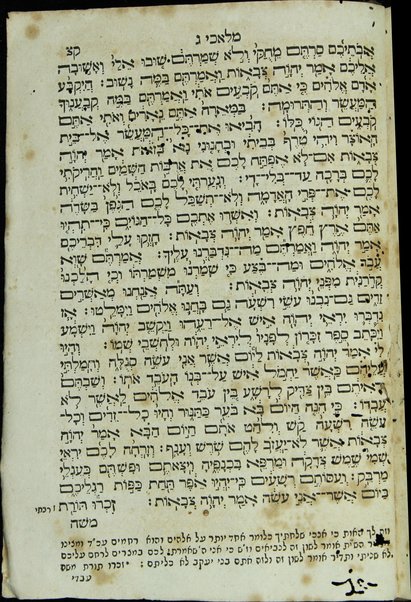 מלאכי ג
קצ
אבתיכם סרתם מחקי ולא שמרתם שובו אלי ואשובה
אליכם אמר יהוה צבאות ואמרתם במה נשוב: היקבע
אדם אלהים כי אתם קבעים אתי ואמרתם במה קבענוך
המעשר והתרומה: במארה אתם נארים ואתי אתם
קבעים הגוי כלו: הביאו את־כל־המעשר אל־בית
האוצר ויהי טרף בביתי ובחנוני נא בזאת אמר יהוה
צבאות אם־לא אפתח לכם את ארבות השמים והריקתי
לכם ברכה עד־בלי־די: וגערתי לכם באכל ולא־ישחית
לכם את־פרי האדמה ולא־תשכל לכם הגפן בשדה
אמר יהוה צבאות: ואשרו אתכם כל־הגוים כי־תהיו
אתם ארץ חפץ אמר יהוה צבאות: חזקו עלי דבריכם
אמר יהוה ואמרתם מה־נדברנו עליך: אמרתם שוא
עבד אלהים ומה־בצע כי שמרנו משמרתו וכי הלכנו
קדרנית מפני יהוה צבאות: ועתה אנחנו מאשרים
זדים גם־נבנו עשי רשעה גם בחנו אלהים וימלטו: אז
נדברו יראי יהוה איש אל־רעהו ויקשב יהוה וישמע
ויכתב ספר זכרון לפניו ליראי יהוה ולחשבי שמו: והיו
לי אמר יהוה צבאות ליום אשר אני עשה סגלה וחמלתי
עליהם כאשר יחמל איש על־בנו העבד אתו: ושבתם
וראיתם בין צדיק לרשע בין עבד אלהים לאשר לא
עבדו: כי הנה היום בא בער כתנור והיו כל־זדים וכל־
עשה רשעה קש ולהט אתם היום הבא אמר יהוה
צבאות אשר לא־יעזב להם שרש וענף: וזרחה לכם יראי
שמי שמש צדקה ומרפא בכנפיה ויצאתם ופשתם כעגלי
מרבק: ועסותם רשעים כי־יהיו אפר תחת כפות רגליכם
ביום אשר־אני עשה אמר יהוה צבאות: זכרו תורת
משה
לך האות כי אנכי שלחתיך כלומר אהד יותר על אלהים והוא רחמים
לשון זה לנביאים כי אני לכם במכרים לרחם עליכם
לא שניתי אמר לשון זה אתם בני יעקב לא כליתם: זכרו תורת משה
עבדי